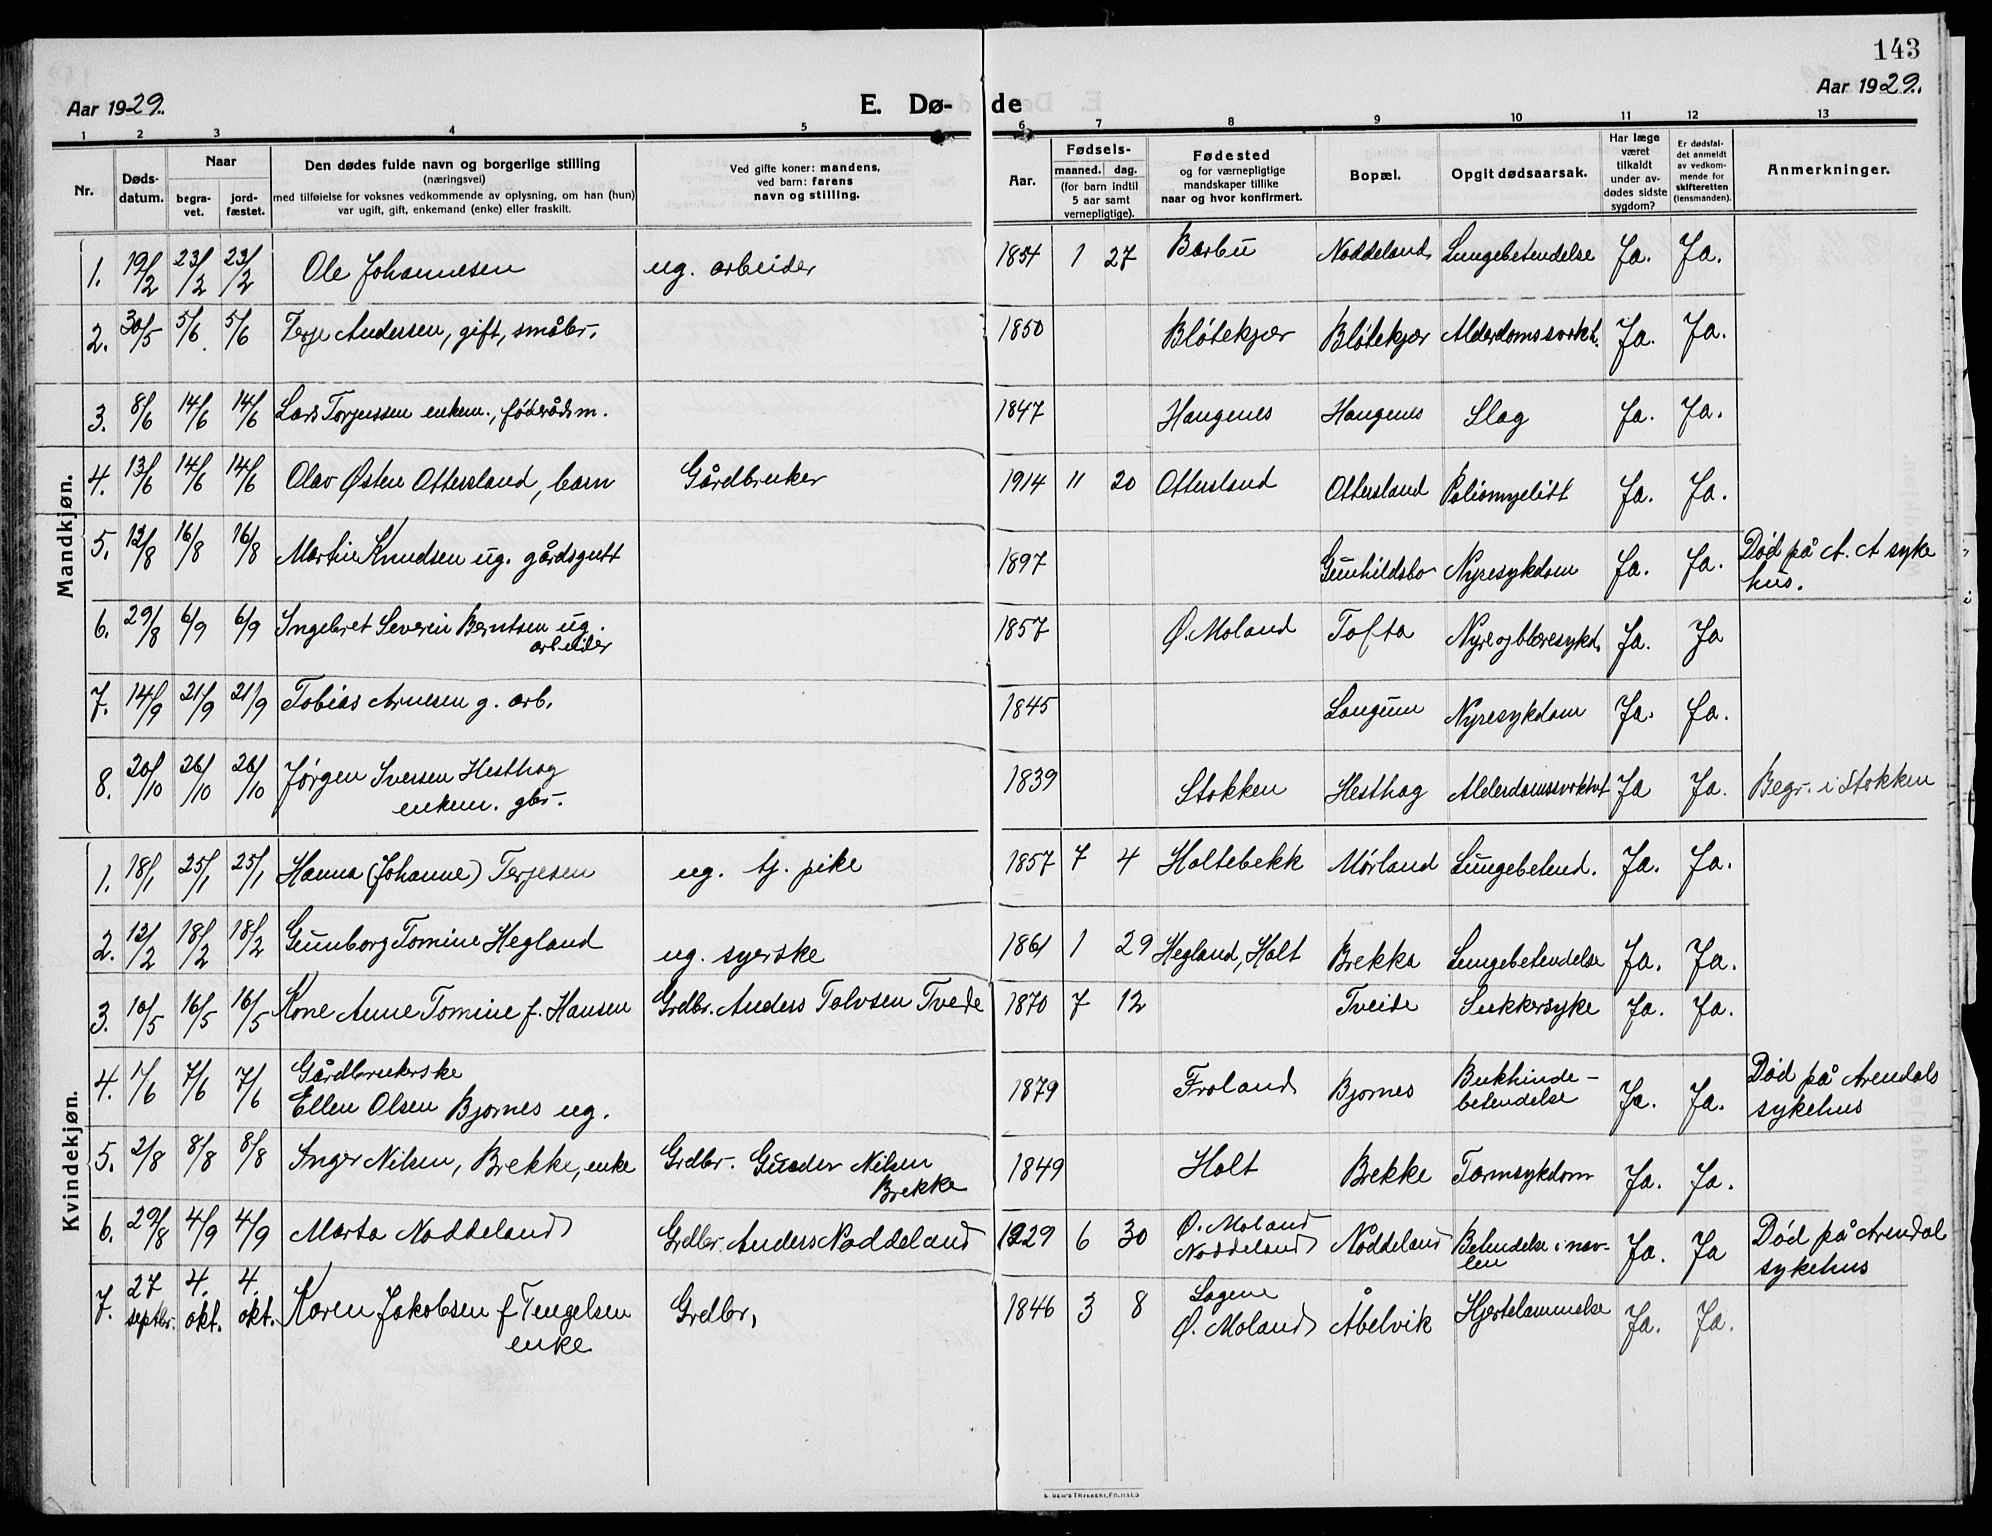 143
Aar 1929. E. Dø- de Aar 1929.
1 2 3 4 5 6 7 8 9 10 11 12 13
Nr. Døds-datum. Naar begra-vet. jord-fæstet. Den dødes fulde navn og borgerlige stilling (næringsvei) med tilføielse for voksnes vedkommende av oplysning, om han (hun) var ugift, gift, enkemand (enke) eller fraskilt. Ved gifte koner: mandens, ved barn: farens navn og stilling. Aar. Fødsels- maaned. dag. (for barn indtil 5 aar samt vernepligtige). Fødested og for værnepligtige mandskaper tillike naar og hvor konfirmert. Bopæl. Opgit dødsaarsak. Har læge været tilkaldt under av-dødes sidste sygdom? Er dødsfal-det anmeldt av vedkom-mende for skifteretten (lensmanden). Anmerkninger.
Mandkjøn.
1. 19/2 23/2 23/2 Ole Johannesen ug. arbeider 1854 1 27 Barbu Noddeland Lungebetendelse Ja. Ja.
2. 30/5 5/6 5/6 Terje Andersen, gift, småbr. 1850 Bløtekjær Bløtekjær Alderdomssvækk. Ja. Ja.
3. 8/6 14/6 14/6 Lars Torjussen enkem., føderådsm. 1847 Haugenes Haugenes Slag Ja. Ja.
4. 13/6 14/6 14/6 Olav Østen Ottersland, barn Gårdbruker 1914 11 20 Ottersland Ottersland Poliomyelitt Ja. Ja.
5. 12/8 16/8 16/8 Martin Knudsen ug. gårdsgutt 1897 Gunhildsbo Nyresykdom Ja. Ja. Død på A. A syke
hus.
6. 29/8 6/9 6/9 Ingebret Severin Berntsen ug.
arbeider 1857 Ø. Moland Tofta Nyre og blæresykd. Ja. Ja
7. 14/9 21/9 21/9 Tobias Arnesen g. arb. 1845 Langum Nyresykdom Ja. Ja.
8. 20/10 26/10 26/10 Jørgen Iversen Hesthag
enkem. gbr. 1839 Stokken Hesthag Alderdomssvækket Ja Ja. Begr. i Stokken
Kvindekjøn.
1. 18/1 25/1 25/1 Hanna (Johanne) Terjesen ug. tj. pike 1857 7 4 Holtebekk Mørland Lungebetend. Ja. Ja.
2. 12/2 18/2 18/2 Gunborg Tomine Hegland ug. syerske 1861 1 29 Hegland, Holt Brekka Lungebetendelse Ja. Ja.
3. 10/5 16/5 16/5 Kone Anne Tomine f. Hansen Grdbr. Anders Tolvsen Tvede 1870 7 12 Tveide Sukkersyke Ja. Ja.
4. 1/6 7/6 7/6 Gårdbrukerske
Ellen Olsen Bjornes ug. 1879 Froland Bjornes Bukhinde-
betendelse Ja. Ja. Død på Arendals
sykehus
5. 2/8 8/8 8/8 Inger Nilsen, Brekke, enke Grdbr. Gunder Nilsen
Brekke 1849 Holt Brekke Tarmsykdom Ja. Ja.
6. 29/8 4/9 4/9 Marta Noddeland Grdbr. Anders Noddeland 1929 6 30 Ø. Moland
Noddeland Noddeland Betendelse i nav-
len Ja. Ja Død på Arendal
sykehus
7. 27 septbr. 4. okt. 4. okt. Karen Jakobsen f Tengelsen
enke Grdbr, 1846 3 8 Lagene
Ø. Moland Åbelvik Hjertelammelse Ja. Ja.